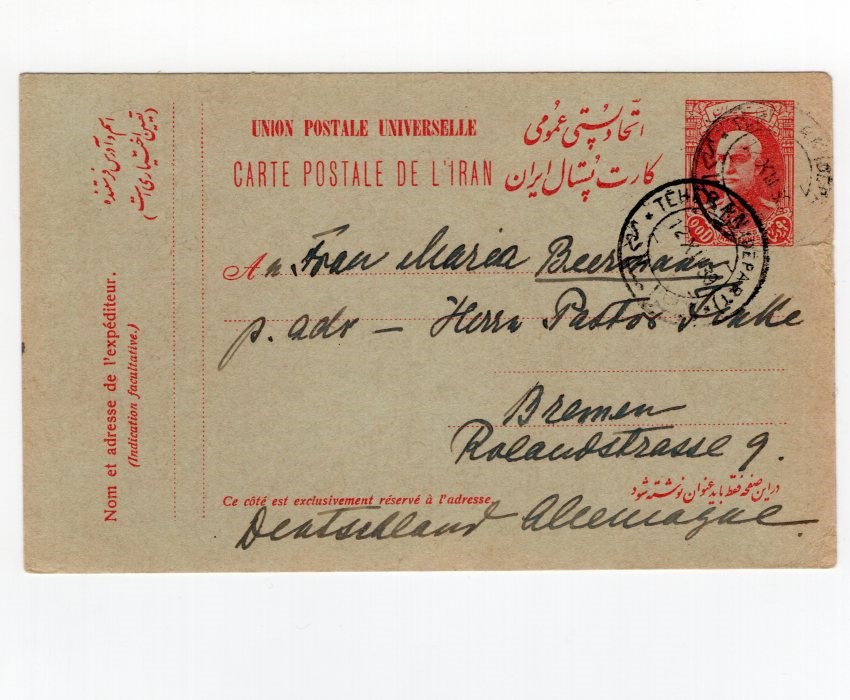 UNION POSTALE UNIVERSELLE
اتحاد پستی عمومی
CARTE POSTALE DE L'IRAN
کارت پستال ایران
اسم و آدرس فرستنده
(تعیین اختیاری است)
Nom et adresse de l'expéditeur.
(Indication facultative.)
TÉHÉRAN (DÉPART)
An Frau Maria Beermann
p. adr – Herrn Pastor
Bremen
Rolandstrasse 9.
Ce côté est exclusivement réservé à l'adresse
در این صفحه فقط باید عنوان نوشته شود
Deutschland Allemagne.